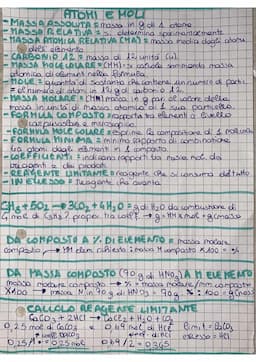 ATOMI E MOLI
- MASSA ASSOLUTA = massa in g di 1 atomo
- MASSA RELATIVA = si determina sperimentalmente
- MASSA ATOMICA RELATIVA (MA) = massa media degli atomi
dell'elemento
- CARBONIO 12 = massa di 12 unità (u)
- MASSA MOLECOLARE = (MM) = si calcola sommando massa
atomica di elementi nella formula
- MOLE = quantità di sostanza che contiene un numero di parti.
= al numero di atomi in 12 g di carbonio 12
- MASSA MOLARE = (MM) massa in g pari al valore della
massa in unità di massa atomica di 1 sua particella
- FORMULA COMPOSTO = rapporto tra elementi a livello
macroscopico e microscopico
- FORMULA MOLECOLARE = esprime la composizione di 1 molecola
- FORMULA MINIMA = minimo rapporto di combinazione
tra atomi degli elementi in 1 composto
- COEFFICIENTI = indicano rapporti tra masse mol. dei
reagenti e dei prodotti
- REAGENTE LIMITANTE = reagente che si consuma del tutto
- IN ECCESSO = reagente che avanza
+ 5O₂ → 3CO₂ + 4H₂O = g di H₂O da combustione di
mol di
DA COMPOSTO A % DI ELEMENTO = massa molare
composto → MM elem. richiesto : molare MM composto × 100 = %
DA MASSA COMPOSTO (90g di HNO₃) A M ELEMENTO
massa molare composto → % = massa molare/mm composto
× 100 → massa N in 90g di HNO₃ = 90g · % : 100 = g (massa)
CALCOLO REAGENTE LIMITANTE
CaCO₃ + 2HCl → CaCl₂ + H₂O + CO₂
0,25 mol di CaCO₃ e 0,69 mol di HCl
0,25/1 = 0,25 mol 0,69/2 = 0,345
eccesso = HCl